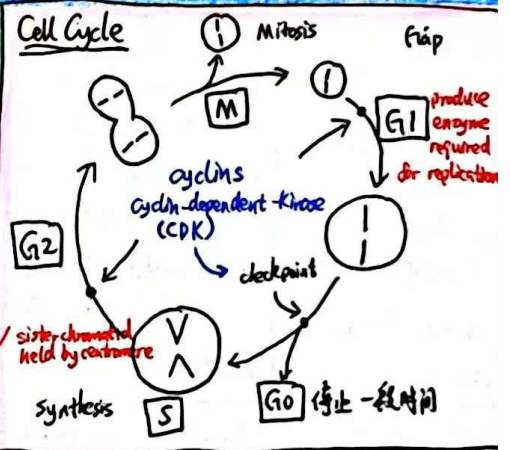 Cell Cycle
Mitosis
Gap
M
G1
produce
enzyme
required
for replication
cyclins
cyclin-dependent-kinase
(CDK)
G2
checkpoint
sister chromatid
held by centromere
Synthesis
S
G0 停止一段时间